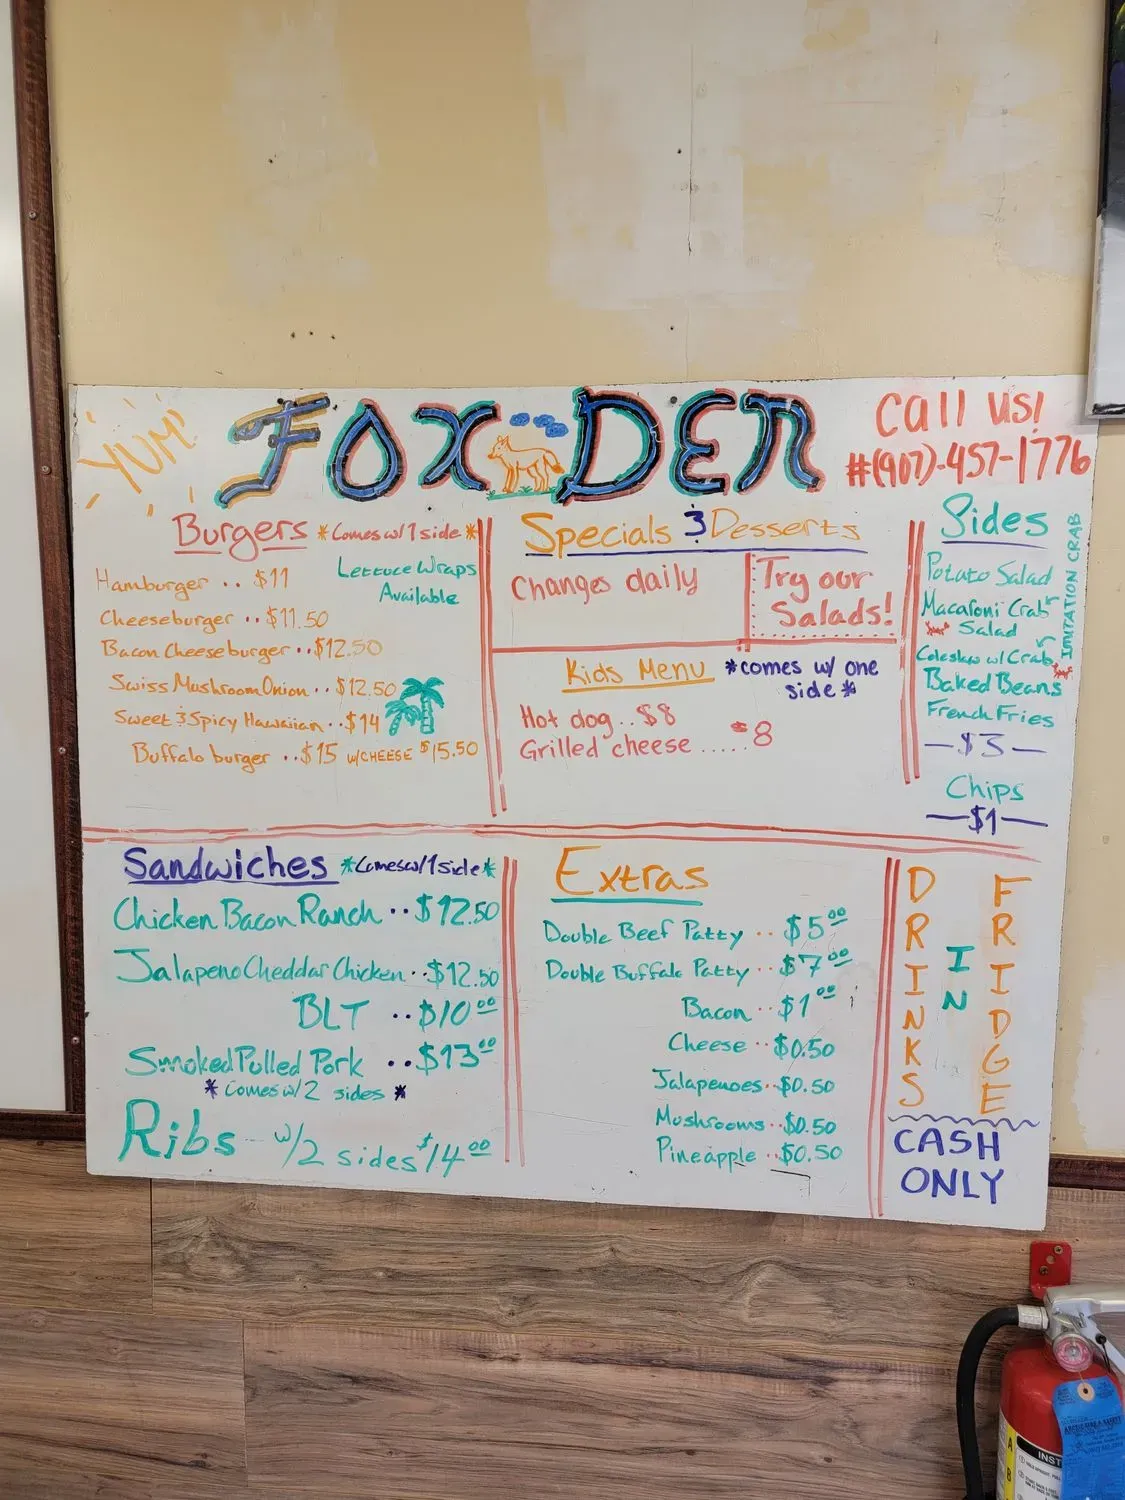 YUM!
FOX DEN
Call us!
#(907)-457-1776
Burgers *Comes w/ 1 side*
Lettuce Wraps
Available
Hamburger .. $11
Cheeseburger .. $11.50
Bacon Cheeseburger .. $12.50
Swiss Mushroom Onion .. $12.50
Sweet & Spicy Hawaiian .. $14
Buffalo burger .. $15 w/CHEESE $15.50
Specials & Desserts
Changes daily
Try our
Salads!
Kids Menu *comes w/ one
side*
Hot dog .. $8
Grilled cheese ..... $8
Sides
Potato Salad
Macaroni Crab
Salad
Coleslaw w/ Crab
IMITATION CRAB
Baked Beans
French Fries
—$3—
Chips
—$1—
Sandwiches *Comes w/ 1 side*
Chicken Bacon Ranch .. $12.50
Jalapeno Cheddar Chicken .. $12.50
BLT .. $10.00
Smoked Pulled Pork .. $13.00
*Comes w/ 2 sides*
Ribs - w/2 sides $14.00
Extras
Double Beef Patty .. $5.00
Double Buffalo Patty .. $7.00
Bacon .. $1.00
Cheese .. $0.50
Jalapenoes .. $0.50
Mushrooms .. $0.50
Pineapple .. $0.50
DRINKS
IN
FRIDGE
CASH
ONLY
INST
A
B